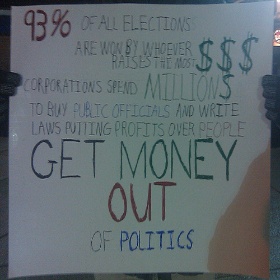 93% OF ALL ELECTIONS
ARE WON BY WHOEVER
RAISES THE MOST $$$
CORPORATIONS SPEND MILLION$
TO BUY PUBLIC OFFICIALS AND WRITE
LAWS PUTTING PROFITS OVER PEOPLE
GET MONEY
OUT
OF POLITICS